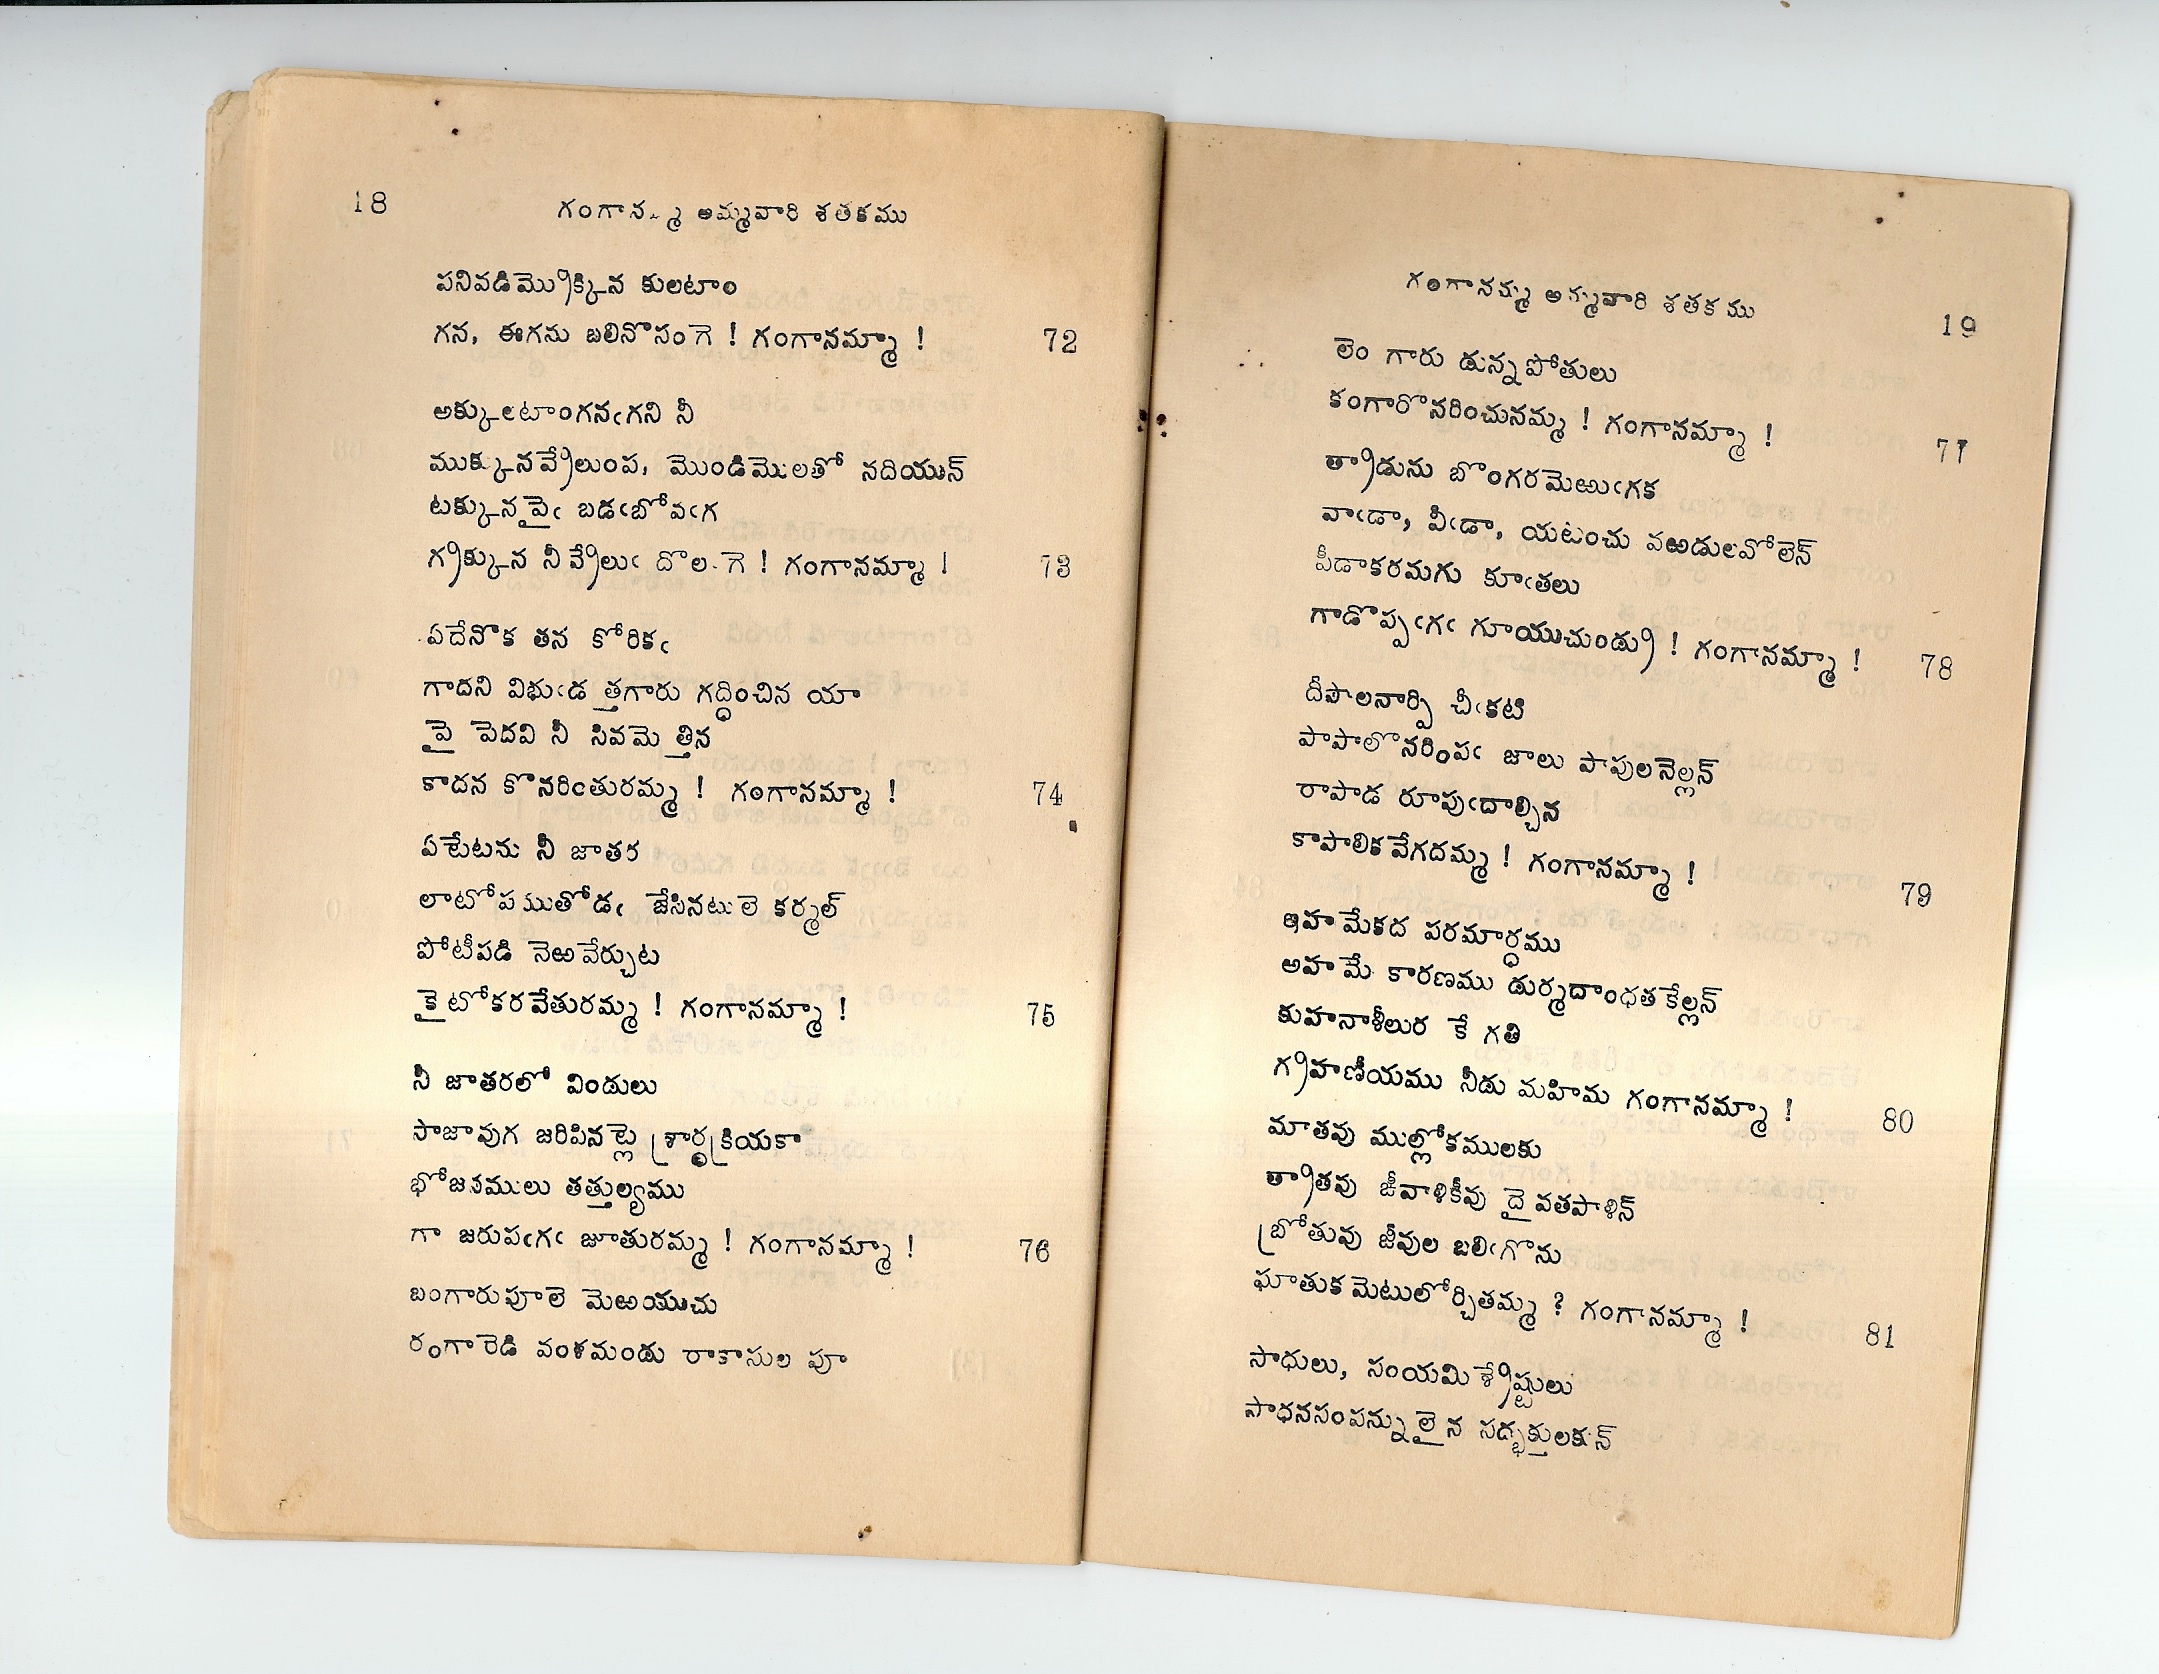 18
గంగానమ్మ అమ్మవారి శతకము
పనివడిమ్రొక్కిన కులటాం
గన, ఈగను బలినొసంగె ! గంగానమ్మా ! 72
అక్కులటాంగనఁగని నీ
ముక్కునవ్రేలుంప, మొండిమొలతో నదియున్
టక్కునపైఁ బడఁబోవఁగ
గ్రక్కున నీవ్రేలుఁ దొలగె ! గంగానమ్మా ! 73
ఏదేనొక తన కోరికఁ
గాదని విభుఁడ త్తగారు గద్దించిన యా
పై పెదవి నీ సివమె త్తిన
కాదన కొనరింతురమ్మ ! గంగానమ్మా ! 74
ఏటేటను నీ జాతర
లాటోపముతోడఁ జేసినటులె కర్మల్
పోటీపడి నెఱవేర్చుట
కైటోకరవేతురమ్మ ! గంగానమ్మా ! 75
నీ జాతరలో విందులు
సాజావుగ జరిపినట్లె శ్రార్ధక్రియకా
భోజనములు తత్తుల్యము
గా జరుపఁగఁ జూతురమ్మ ! గంగానమ్మా ! 76
బంగారుపూలె మెఱయుచు
రంగారెడి వంశమందు రాకాసుల పూ
గంగానమ్మ అమ్మవారి శతకము
19
లెం గారు డున్నపోతులు
కంగారొనరించునమ్మ ! గంగానమ్మా ! 77
త్రాడును బొంగరమెఱుఁగక
వాఁడా, వీఁడా, యటంచు వఱడులవోలెన్
పీడాకరమగు కూఁతలు
గాడొప్పఁగఁ గూయుచుండ్రు ! గంగానమ్మా ! 78
దీపాలనార్పి చీఁకటి
పాపాలొనరింపఁ జాలు పాపులనెల్లన్
రాపాడ రూపుఁదాల్చిన
కాపాలికవేగదమ్మ ! గంగానమ్మా ! 79
ఇహమేకద పరమార్ధము
అహమే కారణము దుర్మదాంధతకేల్లన్
కుహనాళీలుర కే గతి
గ్రహణీయము నీదు మహిమ గంగానమ్మా ! 80
మాతవు ముల్లోకములకు
త్రాతవు జీవాళికీవు దైవతపాళిన్
బ్రోతువు జీవుల బలిఁగొను
ఘాతుకమెటులోర్చితమ్మ ? గంగానమ్మా ! 81
సాధులు, సంయమిశ్రేష్టులు
సాధనసంపన్నులైన సద్భక్తులకున్